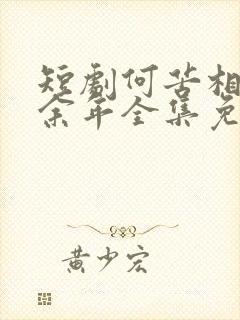 短劇何苦相
余年全集免
黄少宏